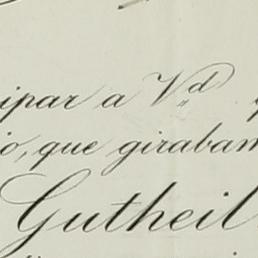 ipar a Vd
o, que giraban
Gutheil